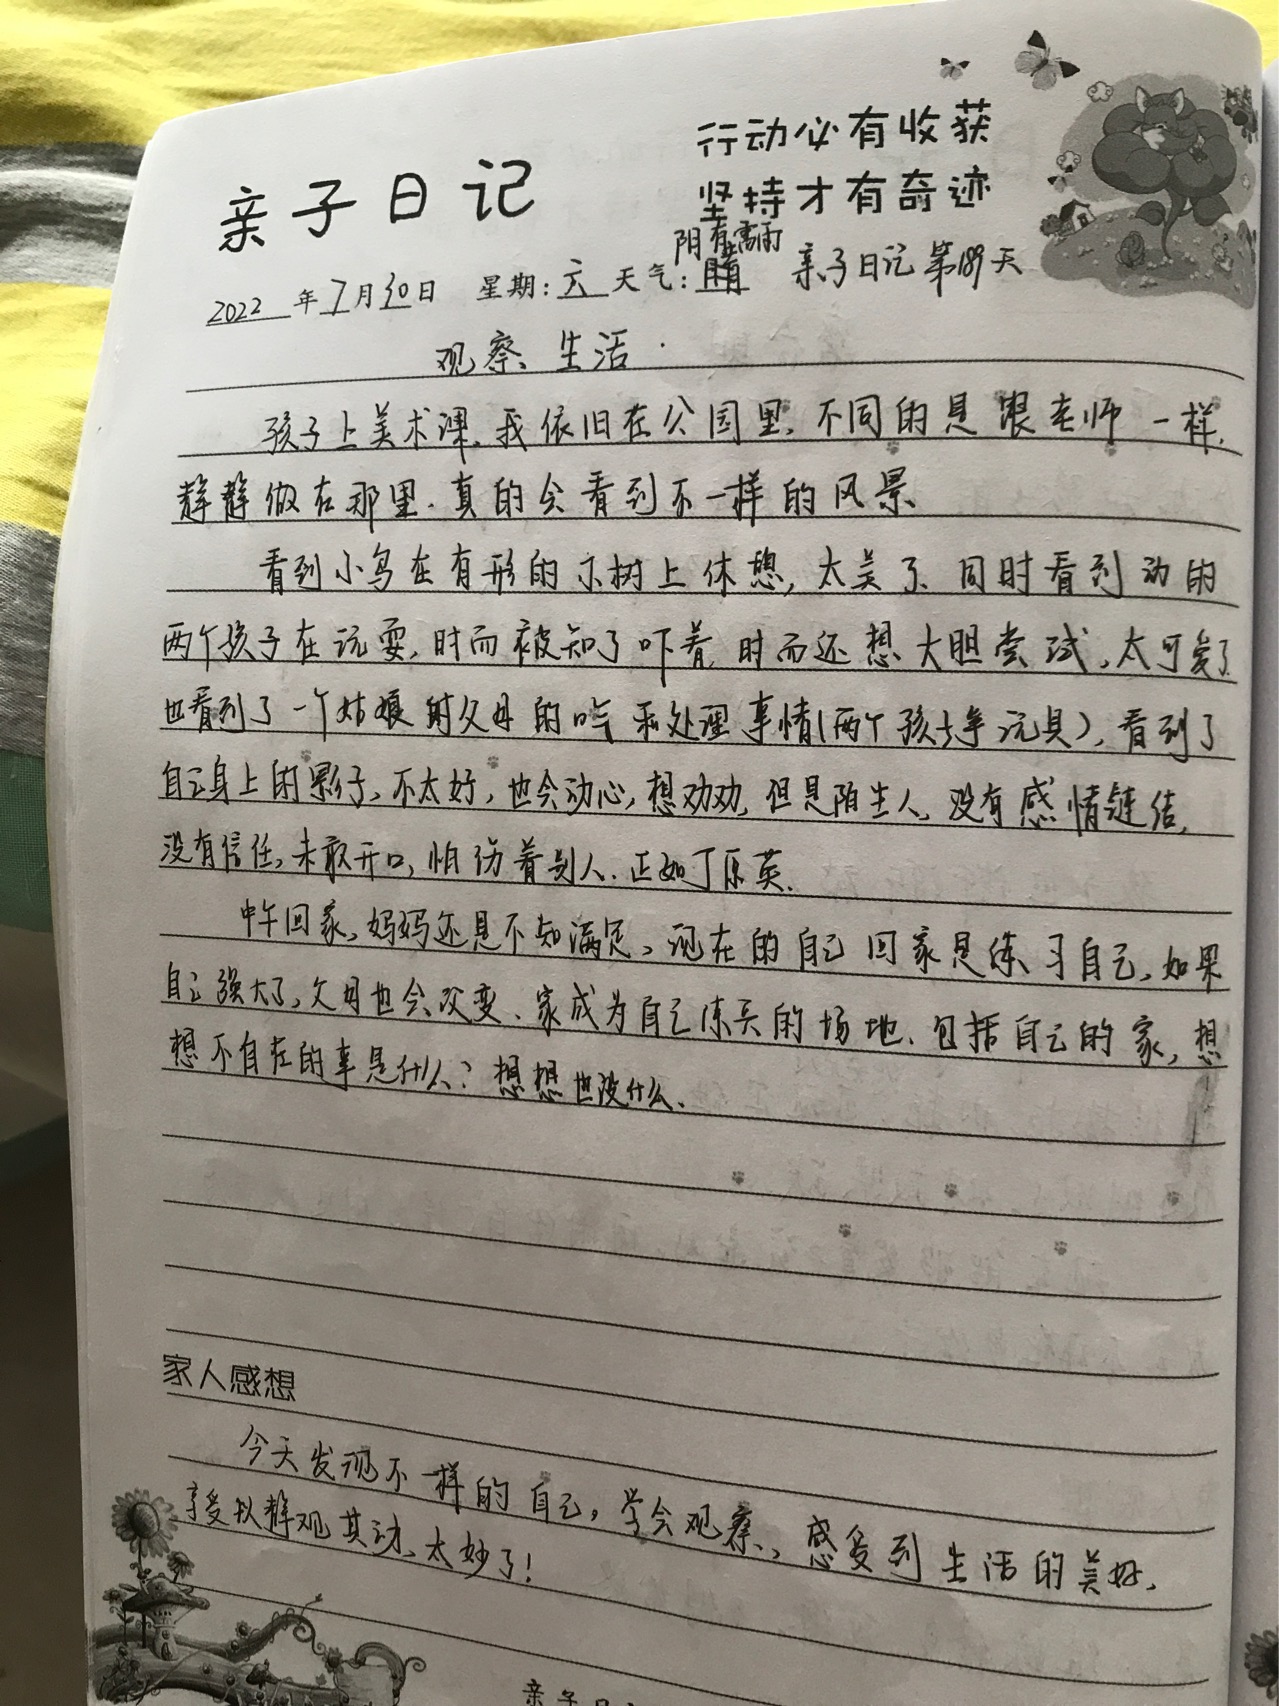 行动必有收获
亲子日记
坚持才有奇迹
阴有雷雨
2022年7月30日 星期:六 天气: 亲子日记第189天
观察生活.
孩子上美术课,我依旧在公园里,不同的是跟老师一样,
静静做在那里.真的会看到不一样的风景
看到小鸟在有形的木树上休憩,太美了、同时看到动的
两个孩子在玩耍,时而被知了吓着,时而还想大胆尝试,太可爱了
也看到了一个姑娘对父母的 和处理事情(两个孩子争玩具),看到了
自己身上的影子,不太好,也会动心,想劝劝,但是陌生人,没有感情链结,
没有信任,未敢开口,怕伤着别人.正如丁原英.
中午回家,妈妈还是不知满足,现在的自己回家是练习自己,如果
自己强大了,父母也会改变、家成为自己练兵的场地、包括自己的家,想
想不自在的事是什么?想想也没什么.
家人感想
今天发现不一样的自己,学会观察,感受到生活的美好,
享受以静观其动,太妙了!